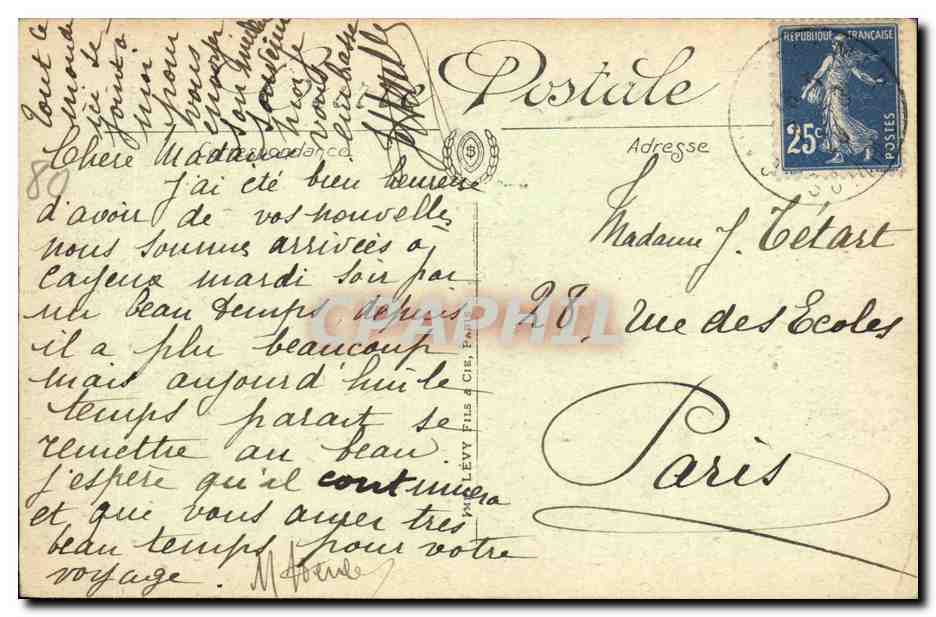 Tout le
monde
ici se
joint à
moi
pour
vous
envoyer
son meilleur
souvenir
vous
embrasse
Postale
RÉPUBLIQUE FRANÇAISE
25c
POSTES
Correspondance
Adresse
80
Chère Madame
j'ai été bien heureuse
d'avoir de vos nouvelles
nous sommes arrivées à
Cayeux mardi soir par
un beau temps, depuis
il a plu beaucoup
mais aujourd'hui le
temps parait se
remettre au beau
j'espère qu'il continuera
et que vous aurer très
beau temps pour votre
voyage.
Madame J. Tétart
28, Rue des Ecoles
Paris
IMP. LÉVY FILS & CIE, PARIS
CPAPHIL